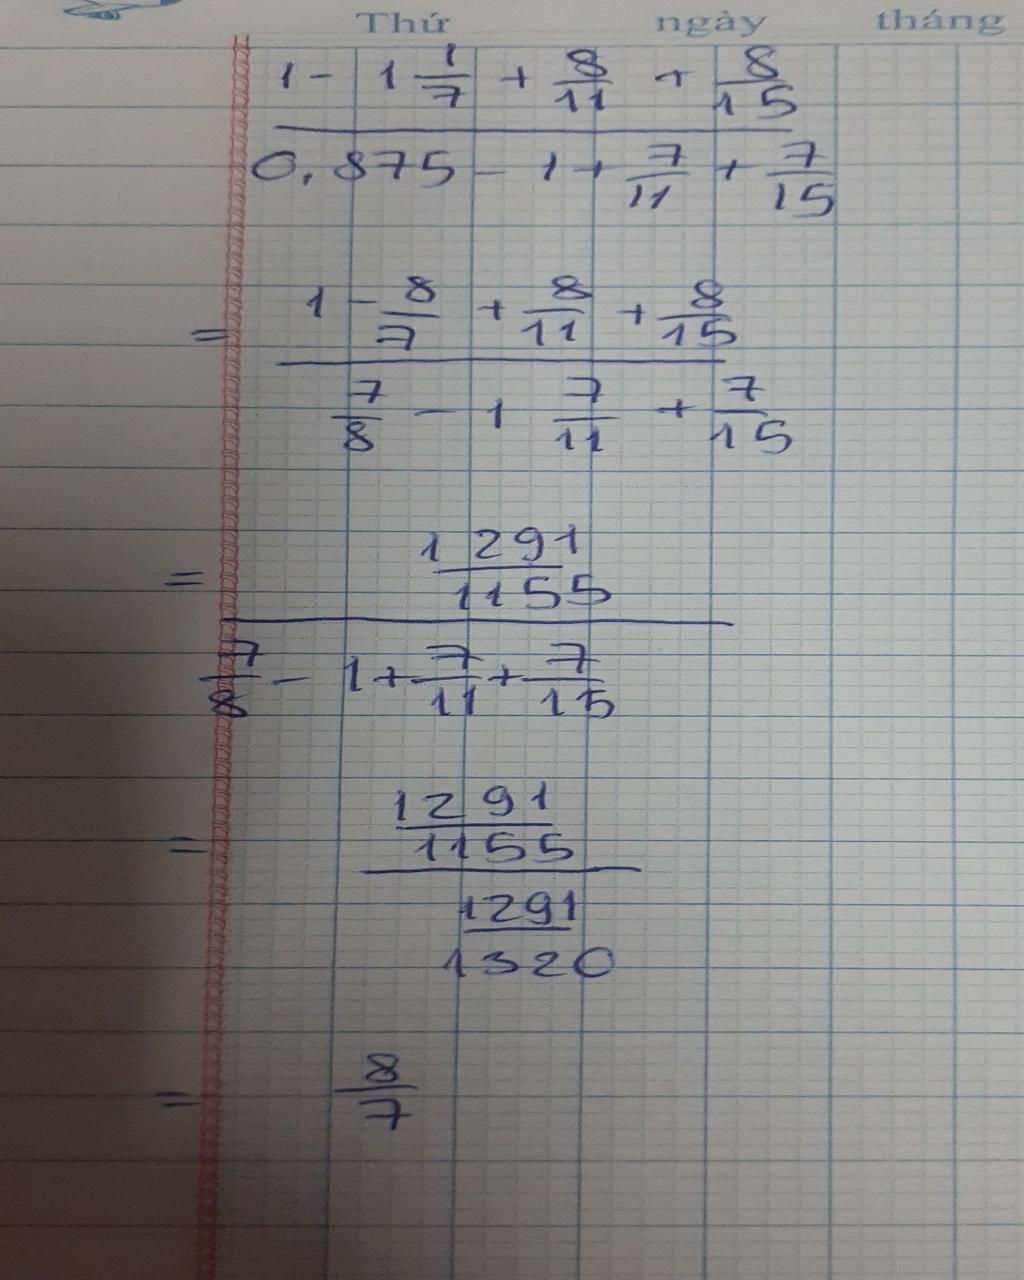 Thứ ngày tháng
1 - 1 1/7 + 8/11 + 8/15
0,875 - 1 + 7/11 + 7/15
= 1 - 8/7 + 8/11 + 8/15
7/8 - 1 7/11 + 7/15
= 1291/1155
7/8 - 1 + 7/11 + 7/15
= 1291/1155
1291/1320
= 8/7